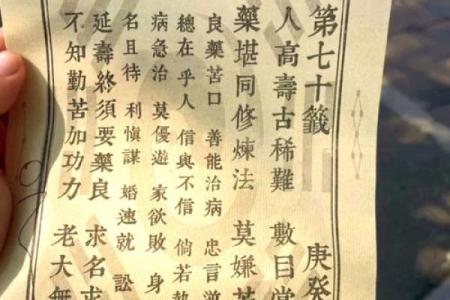 第七十籤 庚癸
人高壽古稀難 數目當
藥堪同修煉法 莫嫌苦
良藥苦口 善能治病 忠言逆
總在乎人 信與不信 倘若執
病急治 莫優遊 家欲敗 身
名且待 利慎謀 婚速就 訟
延壽終須要藥良 求名求
不知勤苦加功力 老大無